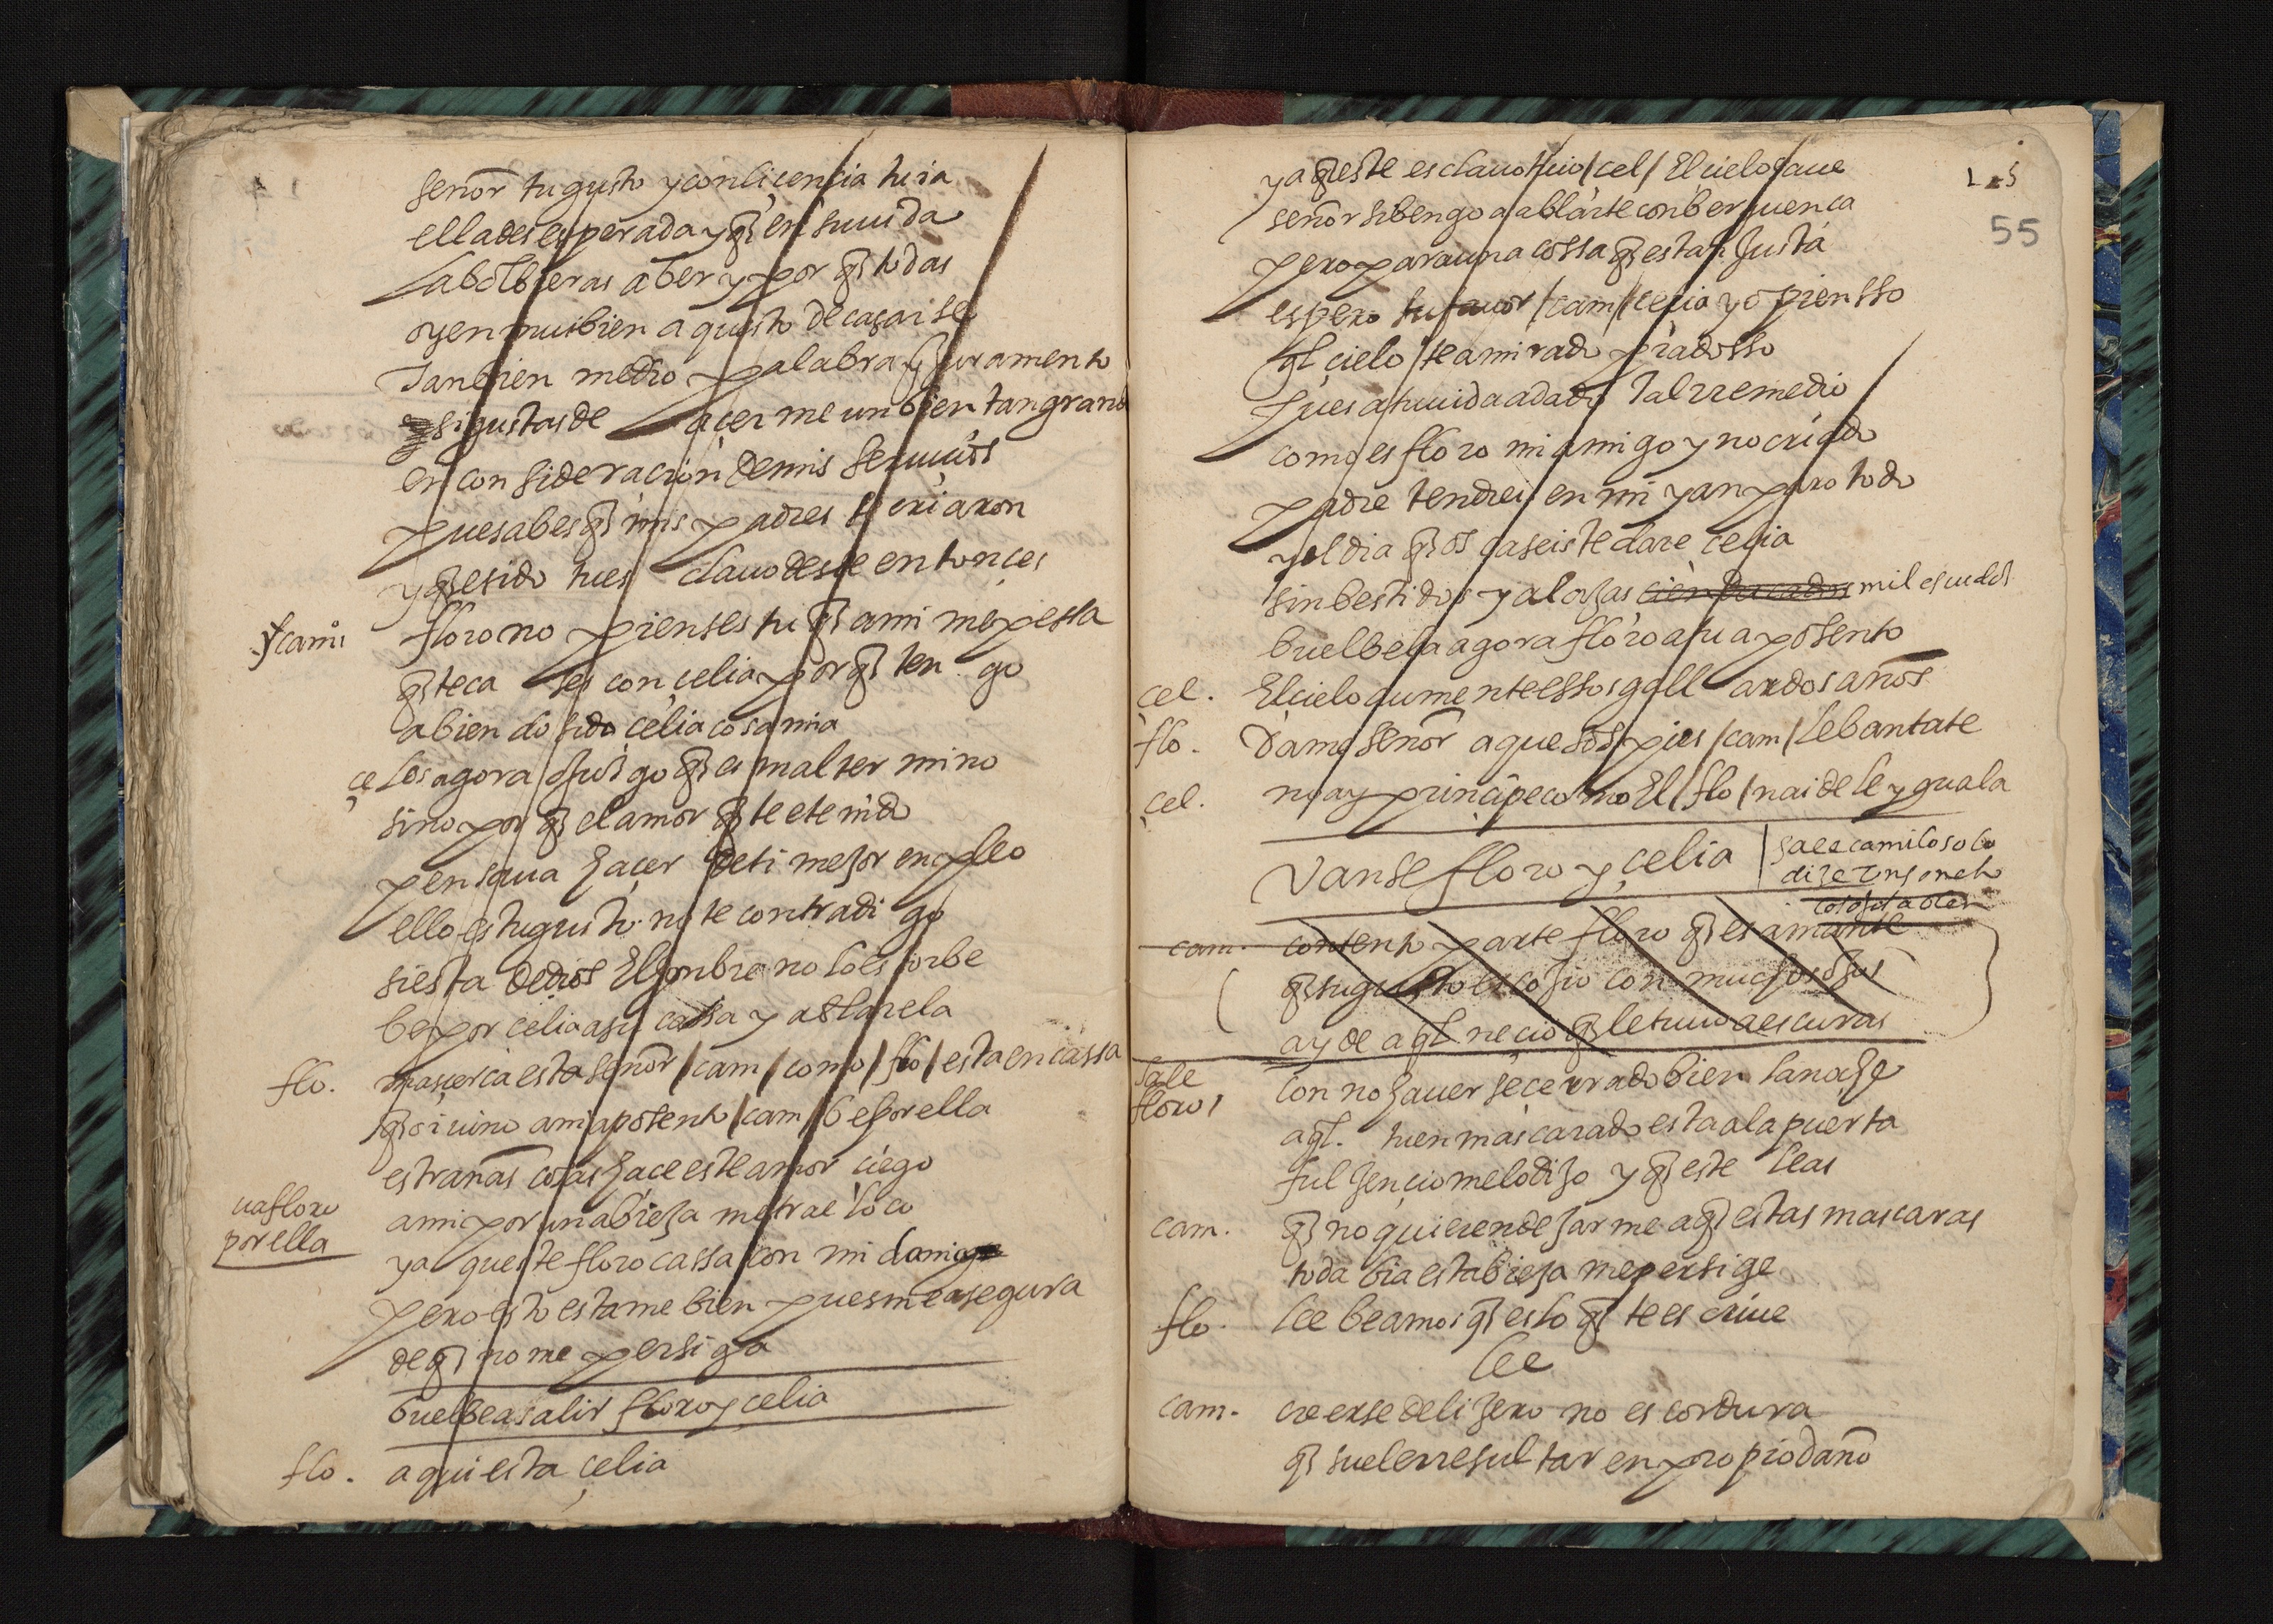 señor tu gusto y con liçençia tuia
ella desesperada y q̃ en su uida
la bolbieras a ber y por q̃ todas
oyen mui bien aquesto de caçarse
tanbien me dio palabra y juramento
si gustas de açerme un bien tan grande
en consideraçion de mis seruiçios
pues abes q̃ mis padres te criaron
y q̃ e sido tu esclauo desde entonçes
cami floro no pienses tu q̃ a mi me pessa
q̃ te cases con çelia por q̃ tengo
abiendo sido çelia cosa mia
çelos agora q̃ es mal termino
sino por q̃ el amor q̃ te e tenido
pensaua haçer de ti mejor enpleo
ello es tu gusto no te contradigo
si esta de dios el honbre no lo estorbe
be por çelia a su cassa y a ablarela
flo. mas çerca esta señor / cam / como / flo / esta en cassa
q̃ oi uino a mi aposento / cam / be por ella
estrañas cosas haçe este amor çiego
ua floro
por ella
a mi por una bieja me trae loco
ya que este floro cassa con mi dama
pero esto estame bien pues me asegura
de q̃ no me persiga
buelbe a salir floro y çelia
flo. aqui esta çelia
55
y aq̃este esclauo tuio / cel / El cielo saue
señor si bengo a ablarte con berguença
pero para una cossa q̃ es tan justa
espero tu fauor / cam / celia yo piensso
q̃l çielo te a mirado piadosso
pues a tu uida a dado tal rremedio
como es floro mi amigo y no criado
padre tendreis en mi y anparo todo
y el dia q̃ os caseis te dare çelia
sin bestidos y alojas çien ducados mil escudos
buelbela agora floro a tu aposento
çel. El cielo aumente essos gallardos años
flo. Dame señor aquesos pies / cam / lebantate
çel. no ay prinçipe como El / flo / naide le yguala
Vanse floro y çelia
sale camilo solo
dize un soneto
cam. contento parte floro q̃ es amante
q̃ su gusto escojio con muchos ojos
ay de aq̃l neçio q̃ le tuuo a escuras
sale
floro
con no hauerse çerrado bien la noche
aq̃l. tu enmascarado esta a la puerta
fuljençio me lo dijo y q̃ este leas
cam. q̃ no quieren dejarme aq̃estas mascaras
toda bia esta bieja me persige
flo. lee beamos q̃ es lo q̃ te escriue
lee
cam. creerse de lijero no es cordura
q̃ suele rresultar en propio daño